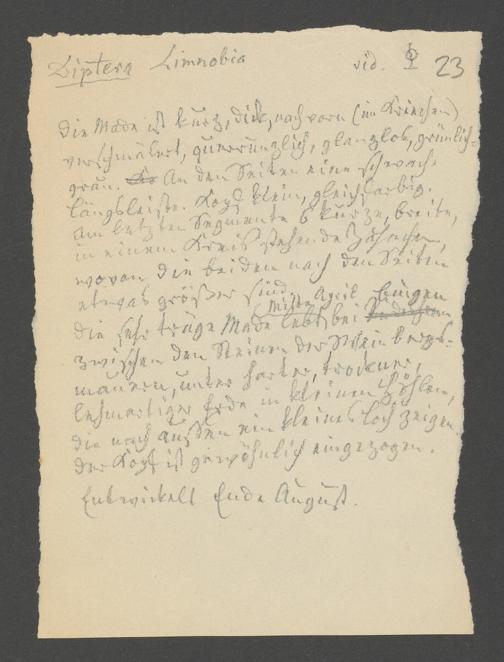 Diptera Limnobia vid. ♀ 23
Die Made ist kurz, dick, nach vorn (im Kriechen)
verschmälert, querrunzlich, glanzlos, grünlich-
grau. An den Seiten eine schwache
Längsleiste. Kopf klein, gleichfarbig.
Am letzten Segmente 6 kurze, breite,
in einem Kreis stehende Zähnchen,
wovon die beiden nach den Seiten
etwas größer sind.
Mitte April
Die sehr träge Made lebt bei Bingen
zwischen den Steinen der Weinbergs-
mauern, unter harter, trockener,
lehmartiger Erde in kleinen Höhlen,
die nach außen ein kleines Loch zeigen.
Der Kopf ist gewöhnlich eingezogen.
Entwickelt Ende August.